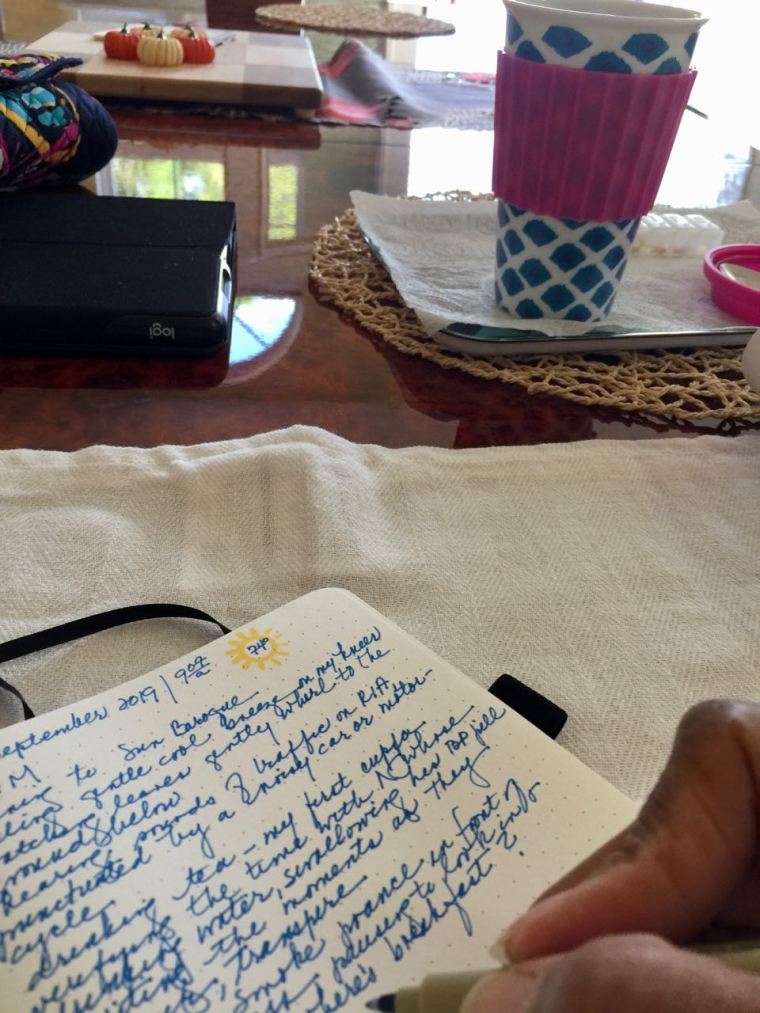 logi
September 2019 | 9 07 a
74°
M
to Sun Baroque
gentle cool breeze on my knees
leaves gently whirl to the
ground below
Hearing sounds of traffic on RIA
punctuated by a noisy car or motor-
cycle.
drinking tea - my first cuppa
the time with N whose
drinking water, swallowing her BP pill
the moments as they
transpire
Smoke prance in front,
pauses to look in to
here's breakfast?